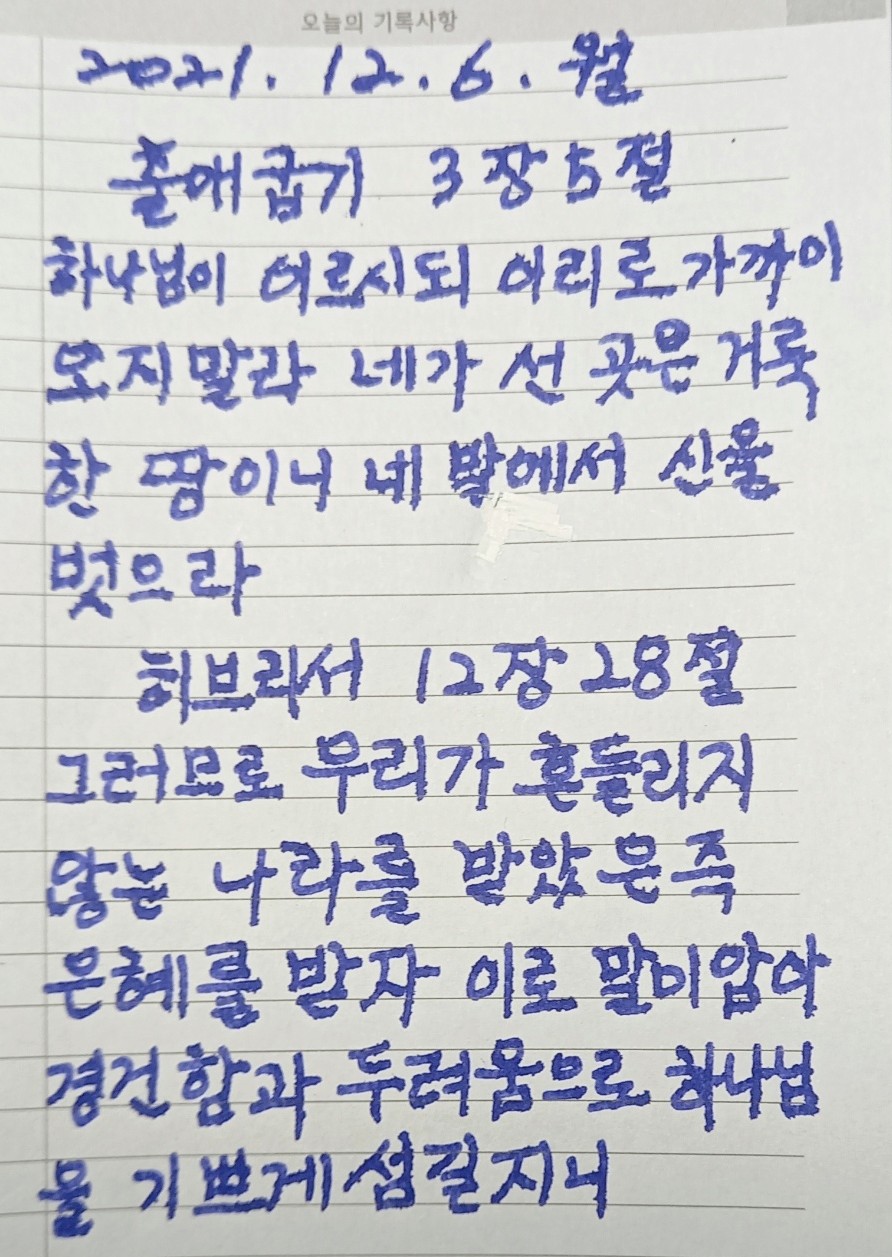 오늘의 기록사항
2021. 12. 6. 월
출애굽기 3장 5절
하나님이 이르시되 이리로 가까이
오지말라 네가 선 곳은 거룩
한 땅이니 네 발에서 신을
벗으라
히브리서 12장 28절
그러므로 우리가 흔들리지
않는 나라를 받았은즉
은혜를 받자 이로 말미암아
경건함과 두려움으로 하나님
을 기쁘게 섬길지니